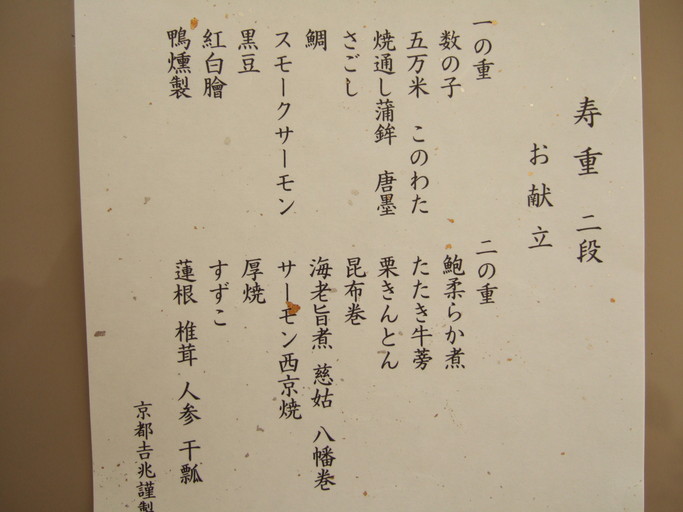 寿重 二段
お献立
一の重
数の子
五万米 このわた
焼通し蒲鉾 唐墨
さごし
鯛
スモークサーモン
黒豆
紅白膾
鴨燻製
二の重
鮑柔らか煮
たたき牛蒡
栗きんとん
昆布巻
海老旨煮 慈姑 八幡巻
サーモン西京焼
厚焼
すずこ
蓮根 椎茸 人参 干瓢
京都吉兆謹製